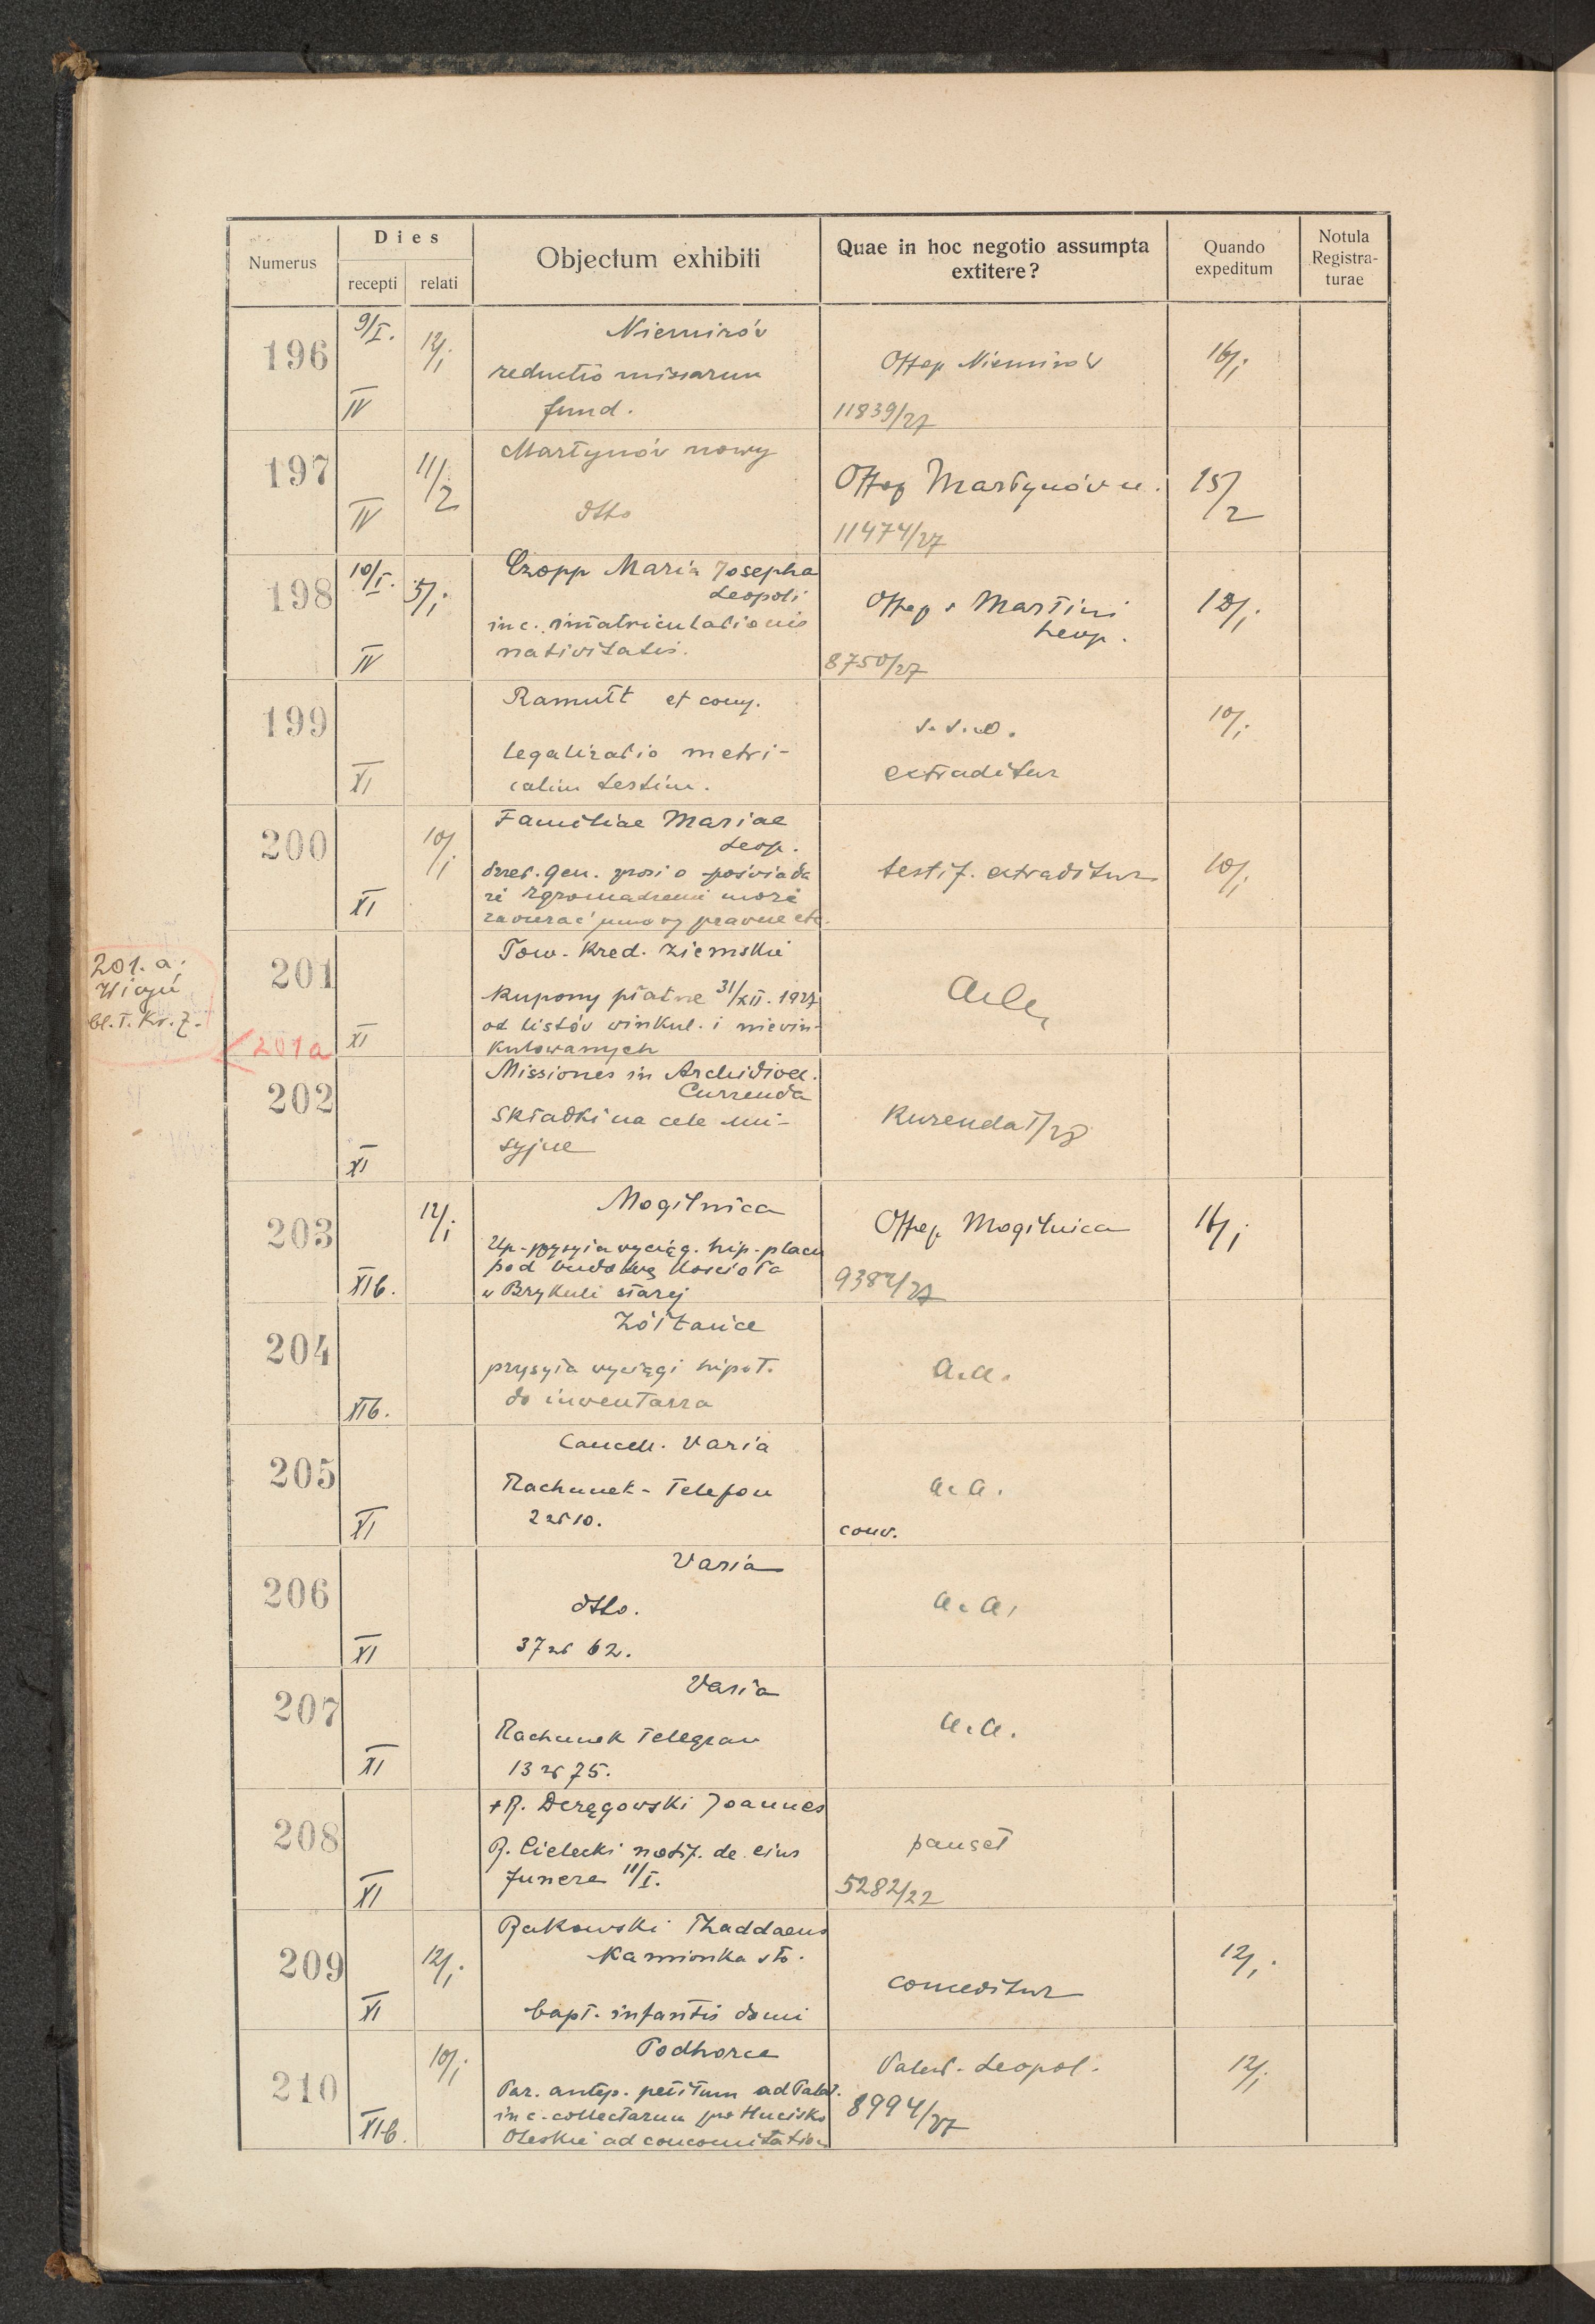 Numerus
Dies
recepti
relati
Objectum exhibiti
Quae in hoc negotio assumpta
extitere?
Quando
expeditum
Notula
Registra-
turae
196
9/I.
IV
12/I
Niemirów
reductio missarum
fund.
Offop Niemirów
11839/27
16/I
197
IV
11/2
Martynów nowy
dtto
Offop Martynów n.
11474/27
15/2
198
10/I.
IV
5/I
Czopp Maria Josepha
Leopoli
inc. imatriculationis
nativitatis.
Offop s Martini
Leop.
8750/27
199
XI
Ramułt et conj.
legalizatio metri-
calium testim.
extraditur
10/I
200
XI
10/I
Familiae Mariae
Leop.
gen. prosi o poświadcz
że Zgromadzenie może
zawierać umowy prawne etc.
testif. extraditur
10/I
201. a.
bl. T. Kr. Z.
201
201a
XI
Tow. Kred. Ziemskie
Kupony płatne 31/XII. 1927
od listów winkul. i niewin-
kulowanych
202
XI
Missiones in Archidioec.
Currenda
Składki na cele mi-
syjne
Kurenda I/28
203
XIb.
12/I
Mogilnica
Up. przesyła wyciąg. hip. placu
pod budowę Kościoła
w Brykuli starej
Offop Mogilnica
9382/27
16/I
204
XIb.
Żółtańce
przysyła wyciągi hipot.
do inwentarza
a.a.
205
XI
Cancell. Varia
Rachunek - Telefon
2 zł 10.
a.a.
conv.
206
XI
Varia
dtto.
37 zł 62.
a.a.
207
XI
Varia
Rachunek Telegram
13 zł 75.
a.a.
208
XI
+ R. Deręgowski Joannes
R. Cielecki notif. de eius
funere 11/I.
5282/22
209
XI
12/I
Rakowski Thaddaeus
Kamionka str.
bapt. infantis domi
conceditur
12/I
210
XI-b.
10/I
Podhorce
Par. antep. petitum ad Palat.
inc. collectarum pro Hucisko
Oleskie ad concomitation
Palat. Leopol.
8994/27
12/I